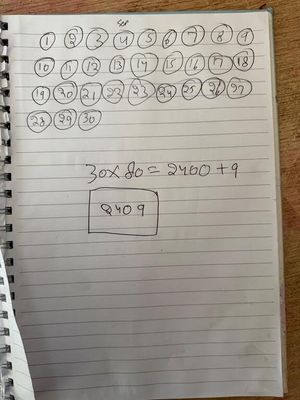 1 2 3 4 5 6 7 8 9
10 11 12 13 14 15 16 17 18
19 20 21 22 23 24 25 26 27
28 29 30
30×80=2400+9
2409